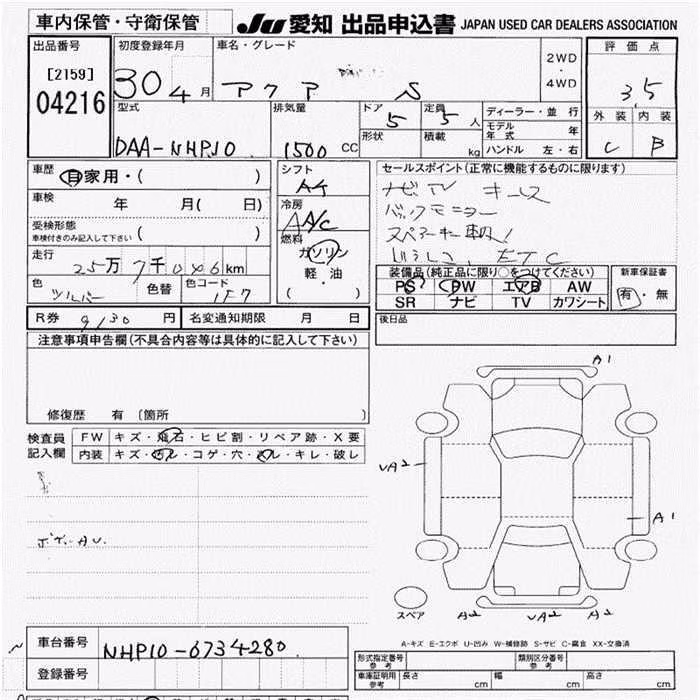 車内保管・守衛保管 JU 愛知 出品申込書 JAPAN USED CAR DEALERS ASSOCIATION
出品番号 初度登録年月 車名・グレード 評価点
[2159] 30年 4月 アクア S 2WD・4WD 3.5
04216
型式 排気量 ドア 定員 ディーラー・並行 外装 内装
DAA-NHP10 1500cc 5 5人 モデル年式 年 C B
形状 積載 kg ハンドル 左・右
車歴 自家用・( ) シフト セールスポイント(正常に機能するものに限ります)
AT ナビTV キーレス
車検 年 月( 日) 冷房 バックモニター
A/C スペアキー
受検形態 ( ) 燃料 ETC
車検付きのみ記入して下さい
走行 ガソリン 装備品(純正品に限り○をつけてください) 新車保証書
25万7千046km 軽・油 PS PW エアB AW 有・無
色 シルバー 色替 色コード 1F7 ( ) SR ナビ TV カワシート
R券 9130円 名変通知期限 月 日 後日品
注意事項申告欄(不具合内容等は具体的に記入して下さい)
修復歴 有 [箇所 ]
検査員記入欄 FW キズ・飛石・ヒビ割・リペア跡・X要
内装 キズ・汚レ・コゲ・穴・スレ・キレ・破レ
A1
UA2
A1
スペア A2 UA2 A2
A-キズ E-エクボ U-凹み W-補修跡 S-サビ C-腐食 XX-交換済
車台番号 NHP10-6734280
登録番号
形式指定番号 参考 類別区分番号 参考
車庫証明用 参考 長さ cm 幅 cm 高さ cm